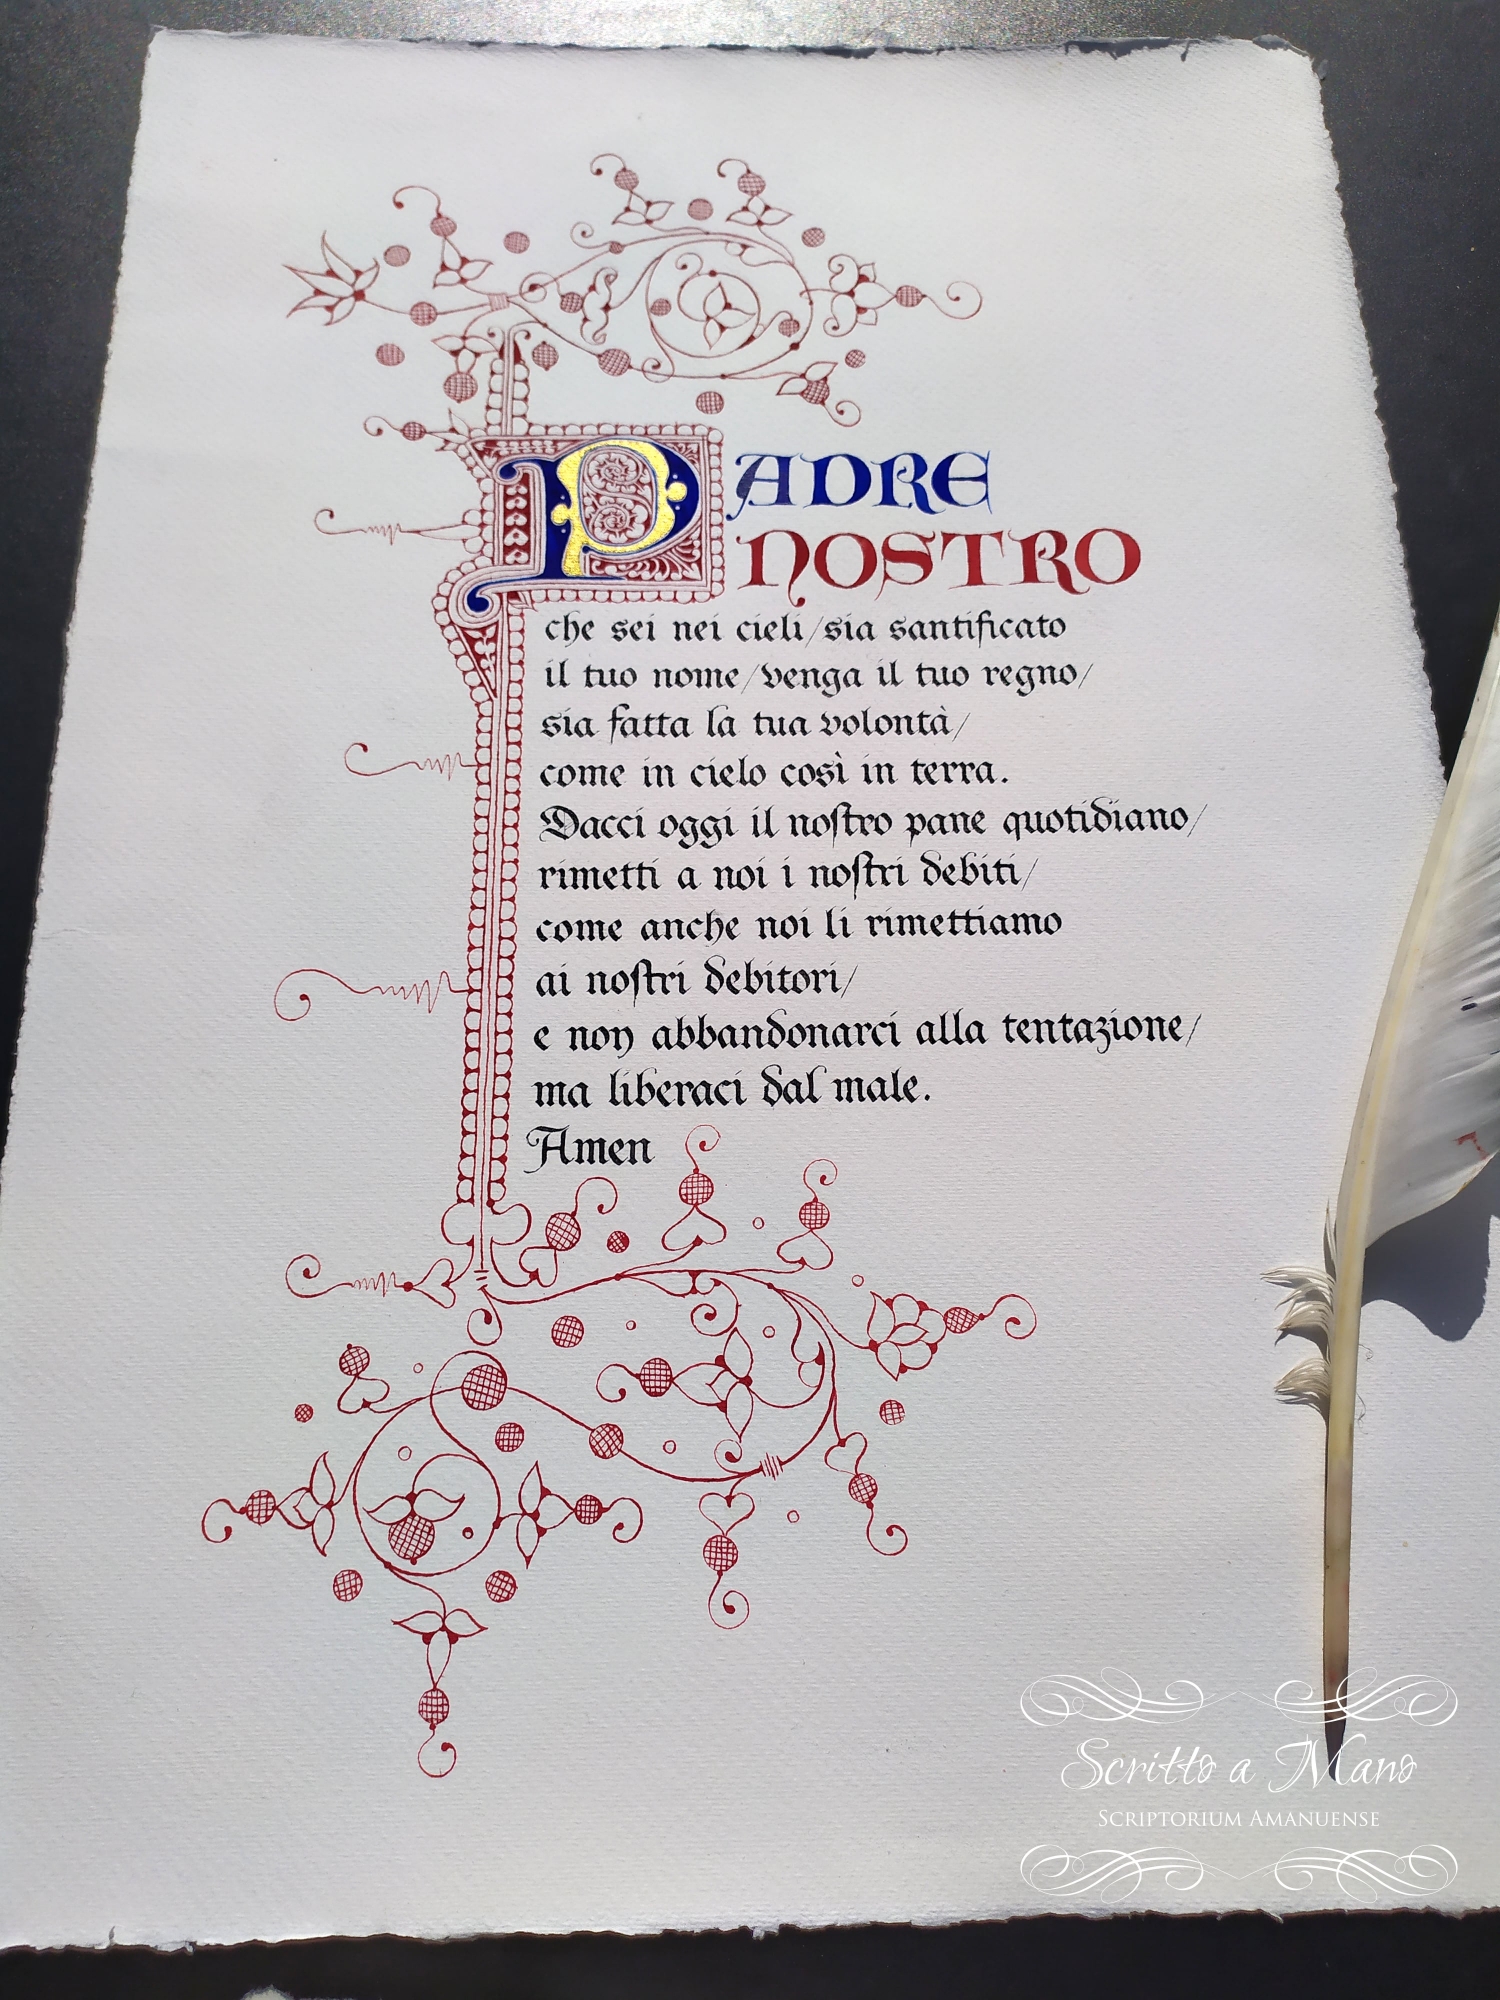 PADRE
NOSTRO
che sei nei cieli/sia santificato
il tuo nome/venga il tuo regno/
sia fatta la tua volontà/
come in cielo così in terra.
Dacci oggi il noſtro pane quotidiano/
rimetti a noi i noſtri debiti/
come anche noi li rimettiamo
ai noſtri debitori/
e non abbandonarci alla tentazione/
ma liberaci dal male.
Amen
Scritto a Mano
SCRIPTORIUM AMANUENSE